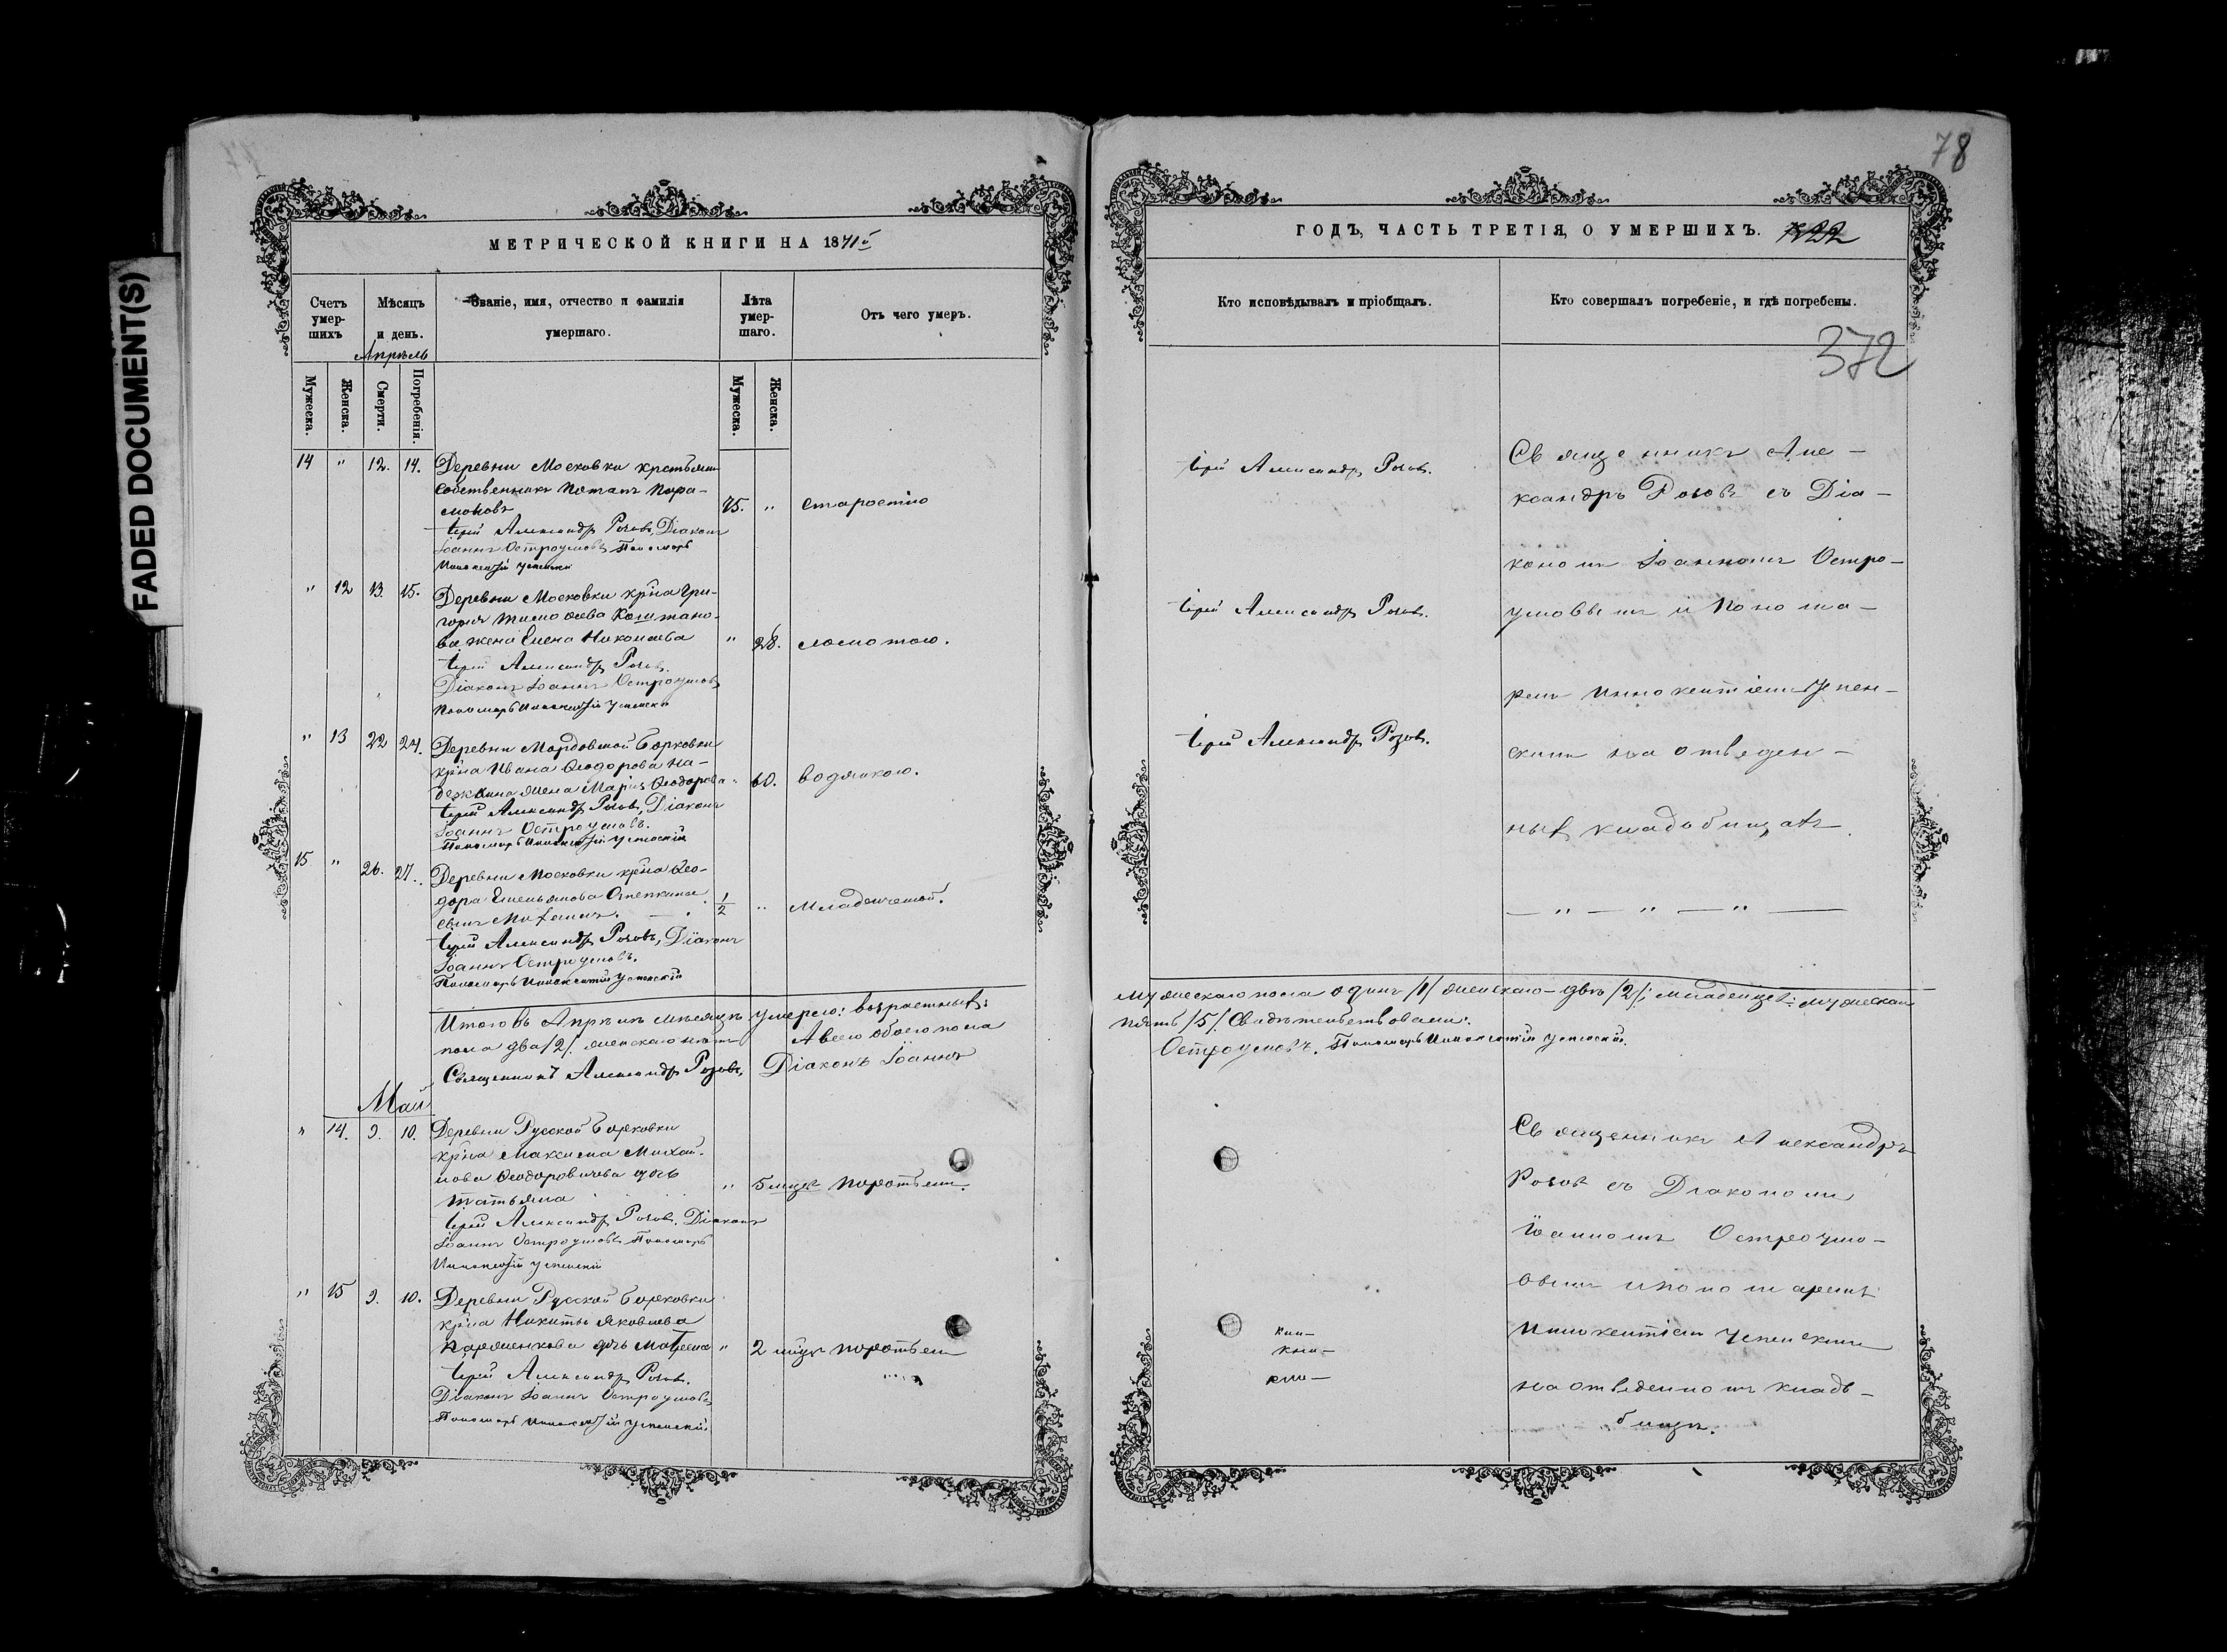 FADED DOCUMENT(S)
МЕТРИЧЕСКОЙ КНИГИ НА 1871й
Счетъ умер-шихъ
Мѣсяцъ и день.
Званіе, имя, отчество и фамилія умершаго.
Лѣта умер-шаго.
Отъ чего умеръ.
Апрѣль
Мужеска.
Женска.
Смерти.
Погребенія.
Мужеска.
Женска.
14 " 12. 14. Деревни Московки крестьянин
собственникъ Потапъ Пара-
моновъ 75. " старостію
Іерей Александръ Розовъ, Діаконъ
Іоаннъ Остроумовъ Пономарь
Иннокентій Успенскій
" 12 13. 15. Деревни Московки кр҃на Гри-
горія Тимоѳеева
ва жена Елена Николаева " 28. ломотою.
Іерей Александръ Розовъ.
Діаконъ Іоаннъ Остроумовъ
Пономарь Иннокентій Успенскій
" 13 22 24. Деревни Мордовской Борковки
кр҃на Ивана Ѳеодорова На-
деждина жена Марія Ѳеодорова " 60. водянкою.
Іерей Александръ Розовъ, Діаконъ
Іоаннъ Остроумовъ.
Пономарь Иннокентій Успенскій
15 " 26. 27. Деревни Московки кр҃на Ѳео-
дора Емельянова Стенькина
сынъ 1/2 " Младенческой.
Іерей Александръ Розовъ, Діаконъ
Іоаннъ Остроумовъ.
Пономарь Иннокентій Успенскій
Итого въ Апрѣлѣ мѣсяцѣ умерло: возрастныхъ:
пола два /2/. женскаго А всего обоего пола
Священникъ Александръ Розовъ, Діаконъ Іоаннъ
Май
" 14. 9. 10. Деревни Русской Борковки
кр҃на Максима Михай-
лова Ѳеодоровичева дочь
Татьяна " 5 мцъ поротьемъ.
Іерей Александръ Розовъ. Діаконъ
Іоаннъ Остроумовъ Пономарь
Иннокентій Успенскій
" 15 9. 10. Деревни Русской Борковки
кр҃на Никиты Яковлева
дочь Матрена " 2 мцъ поротьемъ
Іерей Александръ Розовъ.
Діаконъ Іоаннъ Остроумовъ
Пономарь Иннокентій Успенскій.
78
ГОДЪ, ЧАСТЬ ТРЕТІЯ, О УМЕРШИХЪ.
Кто исповѣдывалъ и пріобщалъ.
Кто совершалъ погребеніе, и гдѣ погребены.
372
Іерей Александръ Розовъ.
Іерей Александръ Розовъ.
Іерей Александръ Розовъ.
Священникъ Але-
ксандръ Розовъ съ Діа-
кономъ Іоанномъ Остро-
умовымъ и Понома-
ремъ Иннокентіемъ Успен-
скимъ на отведен-
ныхъ кладбищахъ.
— " — " — " —
Мужескаго пола одинъ /1/ женскаго - двѣ /2/; младенцевъ: мужескаго
пять /5/. Свидѣтельствовали:
Остроумовъ. Пономарь Иннокентій Успенскій.
Священникъ Александръ
Розовъ съ Діакономъ
Іоанномъ Остроумо-
вымъ и пономаремъ
Иннокентіемъ Успенскимъ
на отведенномъ клад-
бищѣ.